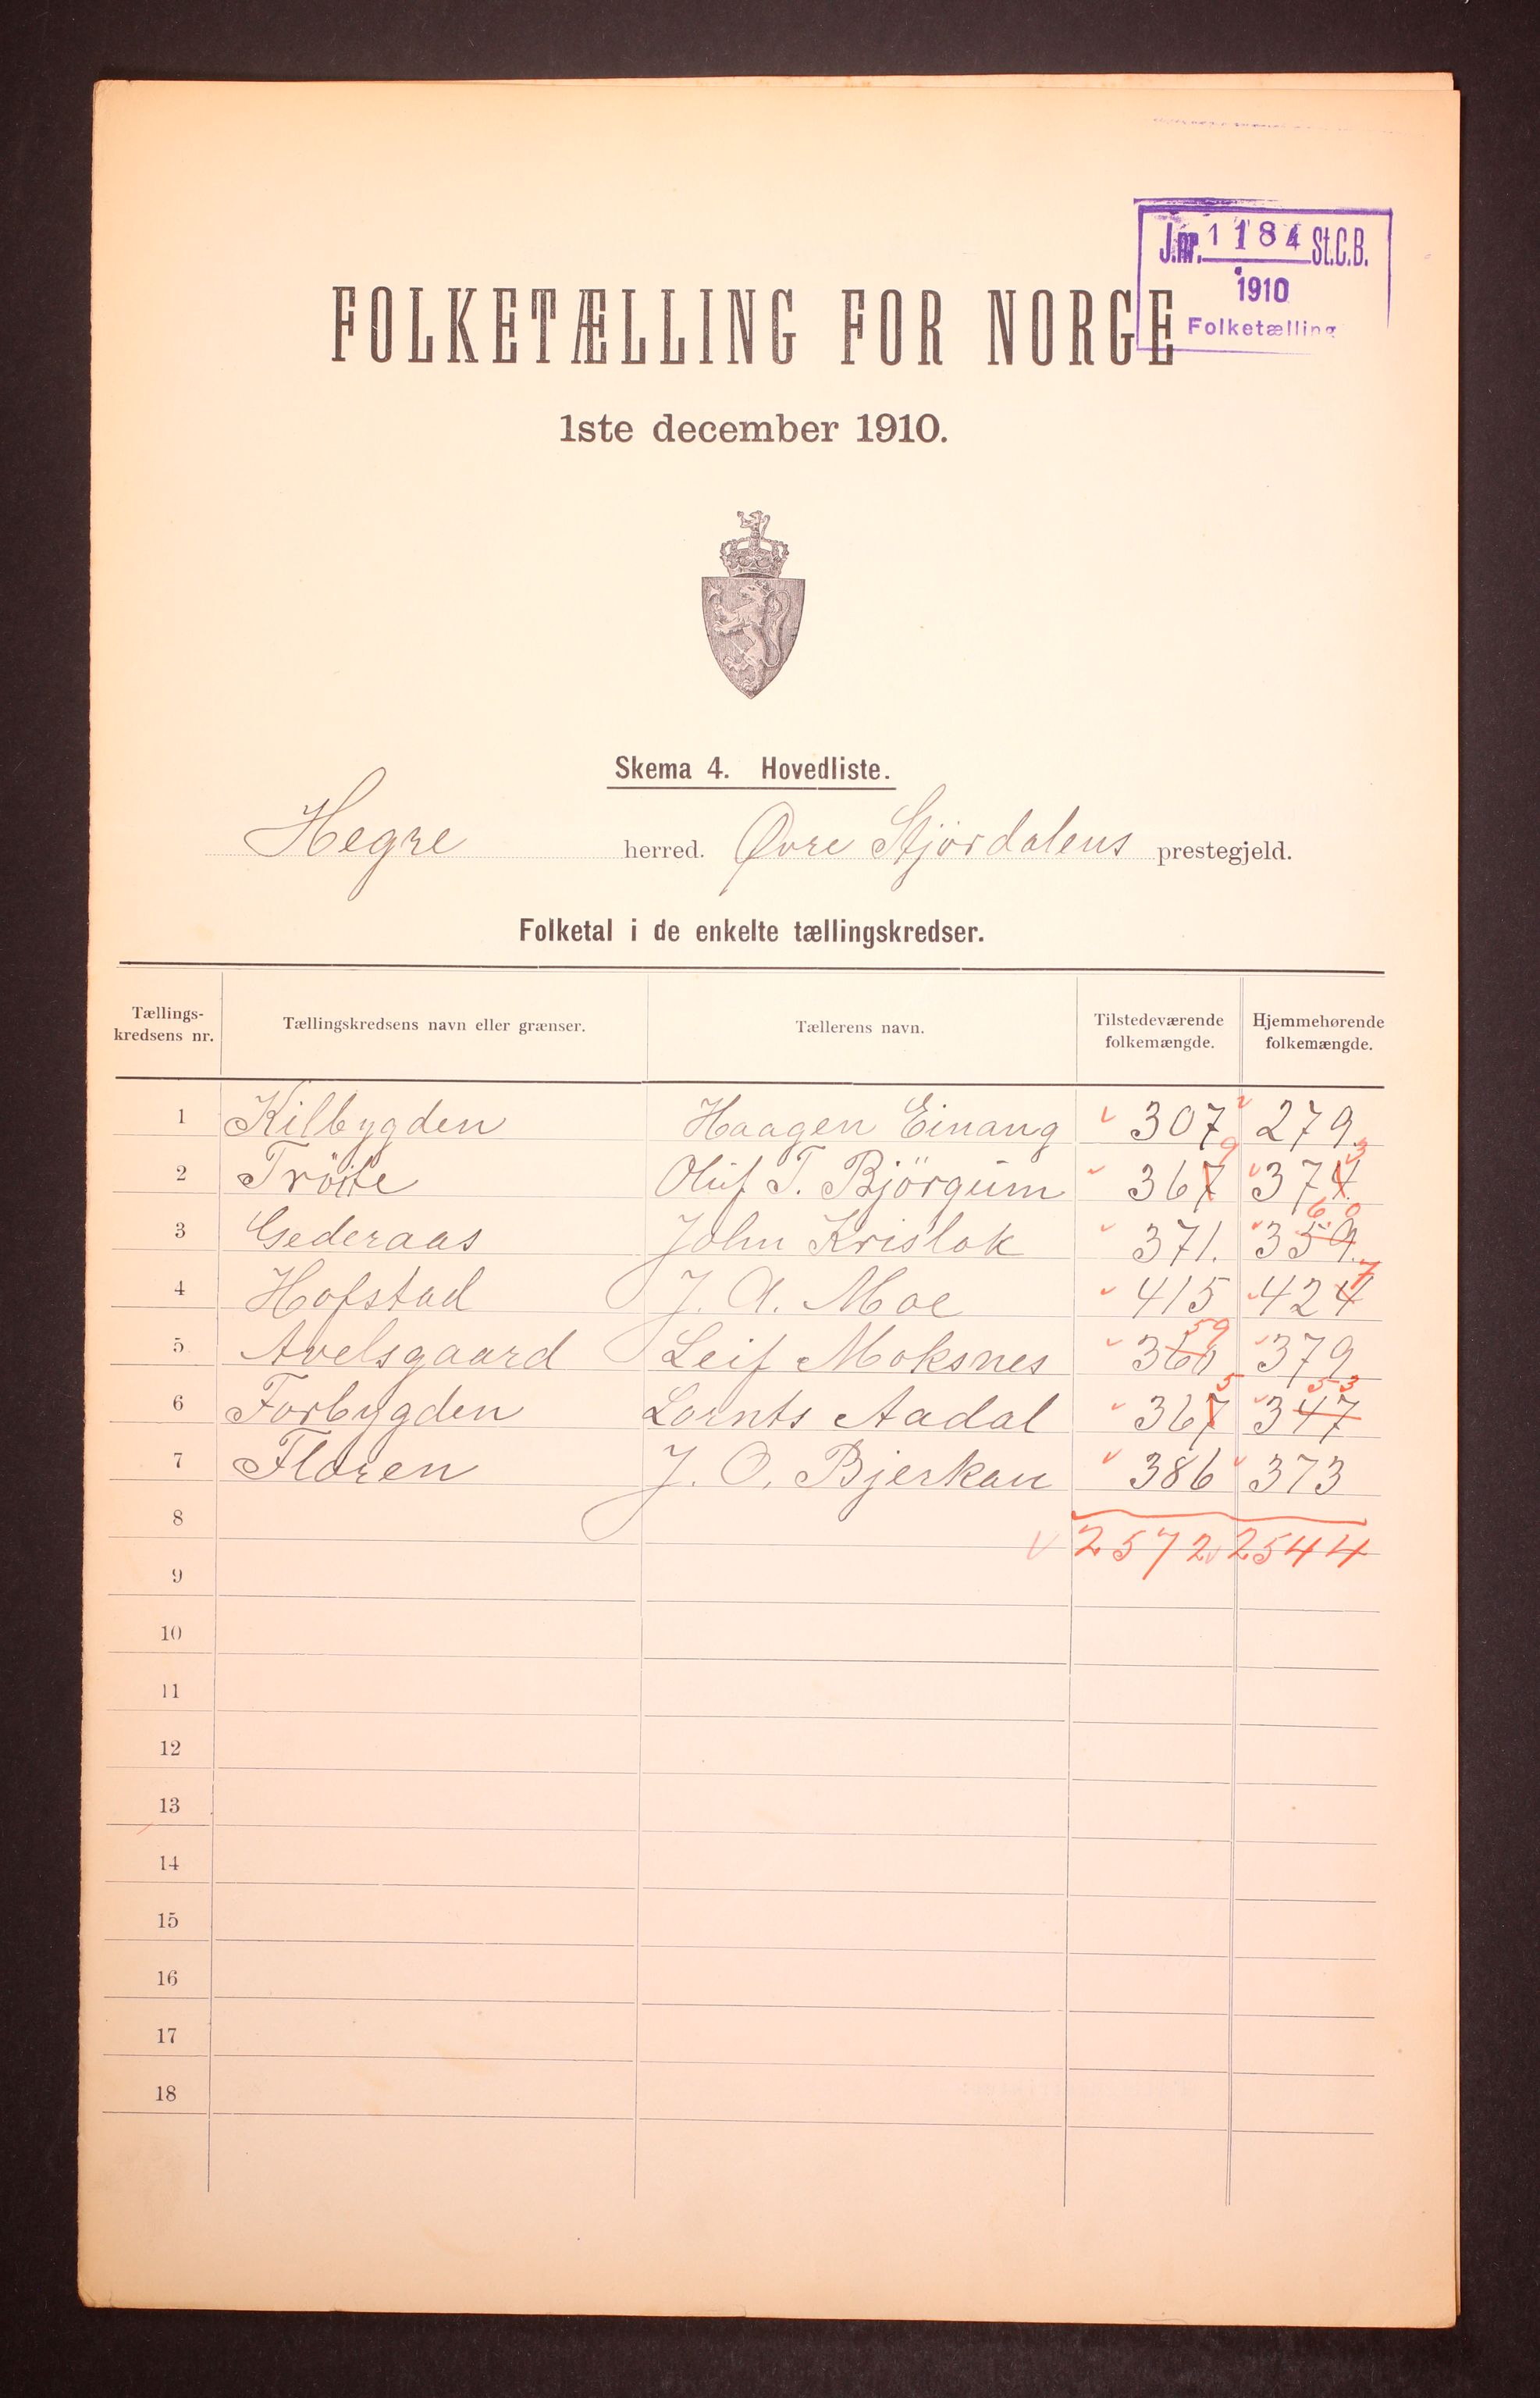 J.nr. 1184 St.C.B.
1910
Folketælling
FOLKETÆLLING FOR NORGE
1ste december 1910.
Skema 4. Hovedliste.
Hegre herred. Øvre Stjördalens prestegjeld.
Folketal i de enkelte tællingskredser.
Tællings-kredsens nr. Tællingskredsens navn eller grænser. Tællerens navn. Tilstedeværende folkemængde. Hjemmehørende folkemængde.
1 Kilbygden Haagen Einang 307 279.
2 Tröite Oluf T. Björgum 367 9 374 3
3 Gederaas John Krislok 371. 359. 60
4 Hofstad J. A. Moe 415 424 7
5 Avelsgaard Leif Moksnes 360 59 379
6 Forbygden Lornts Aadal 367 5 347 53
7 Floren J. O. Bjerkan 386 373
8
2572 2544
9
10
11
12
13
14
15
16
17
18